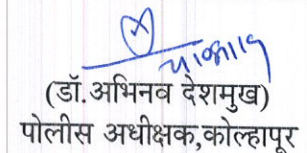 (डॉ.अभिनव देशमुख)
पोलीस अधीक्षक,कोल्हापूर